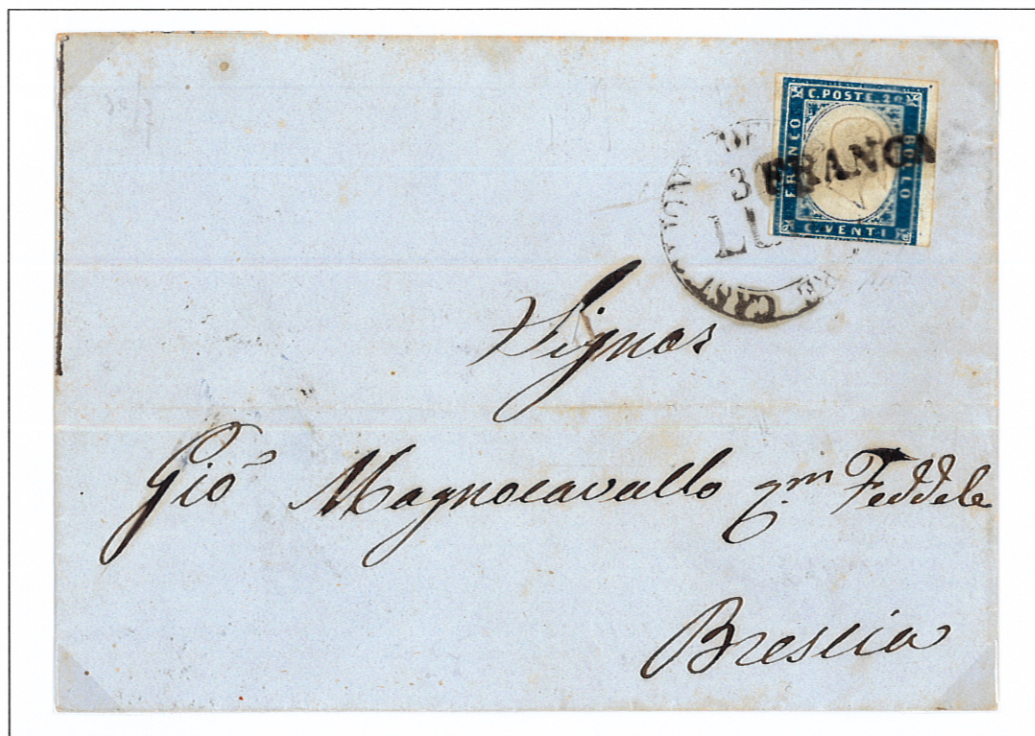 C. POSTE. 20
FRANCO
BOLLO
C. VENTI
FRANCA
LU
CAST
Signor
Gio Magnocavallo qm Feddele
Brescia